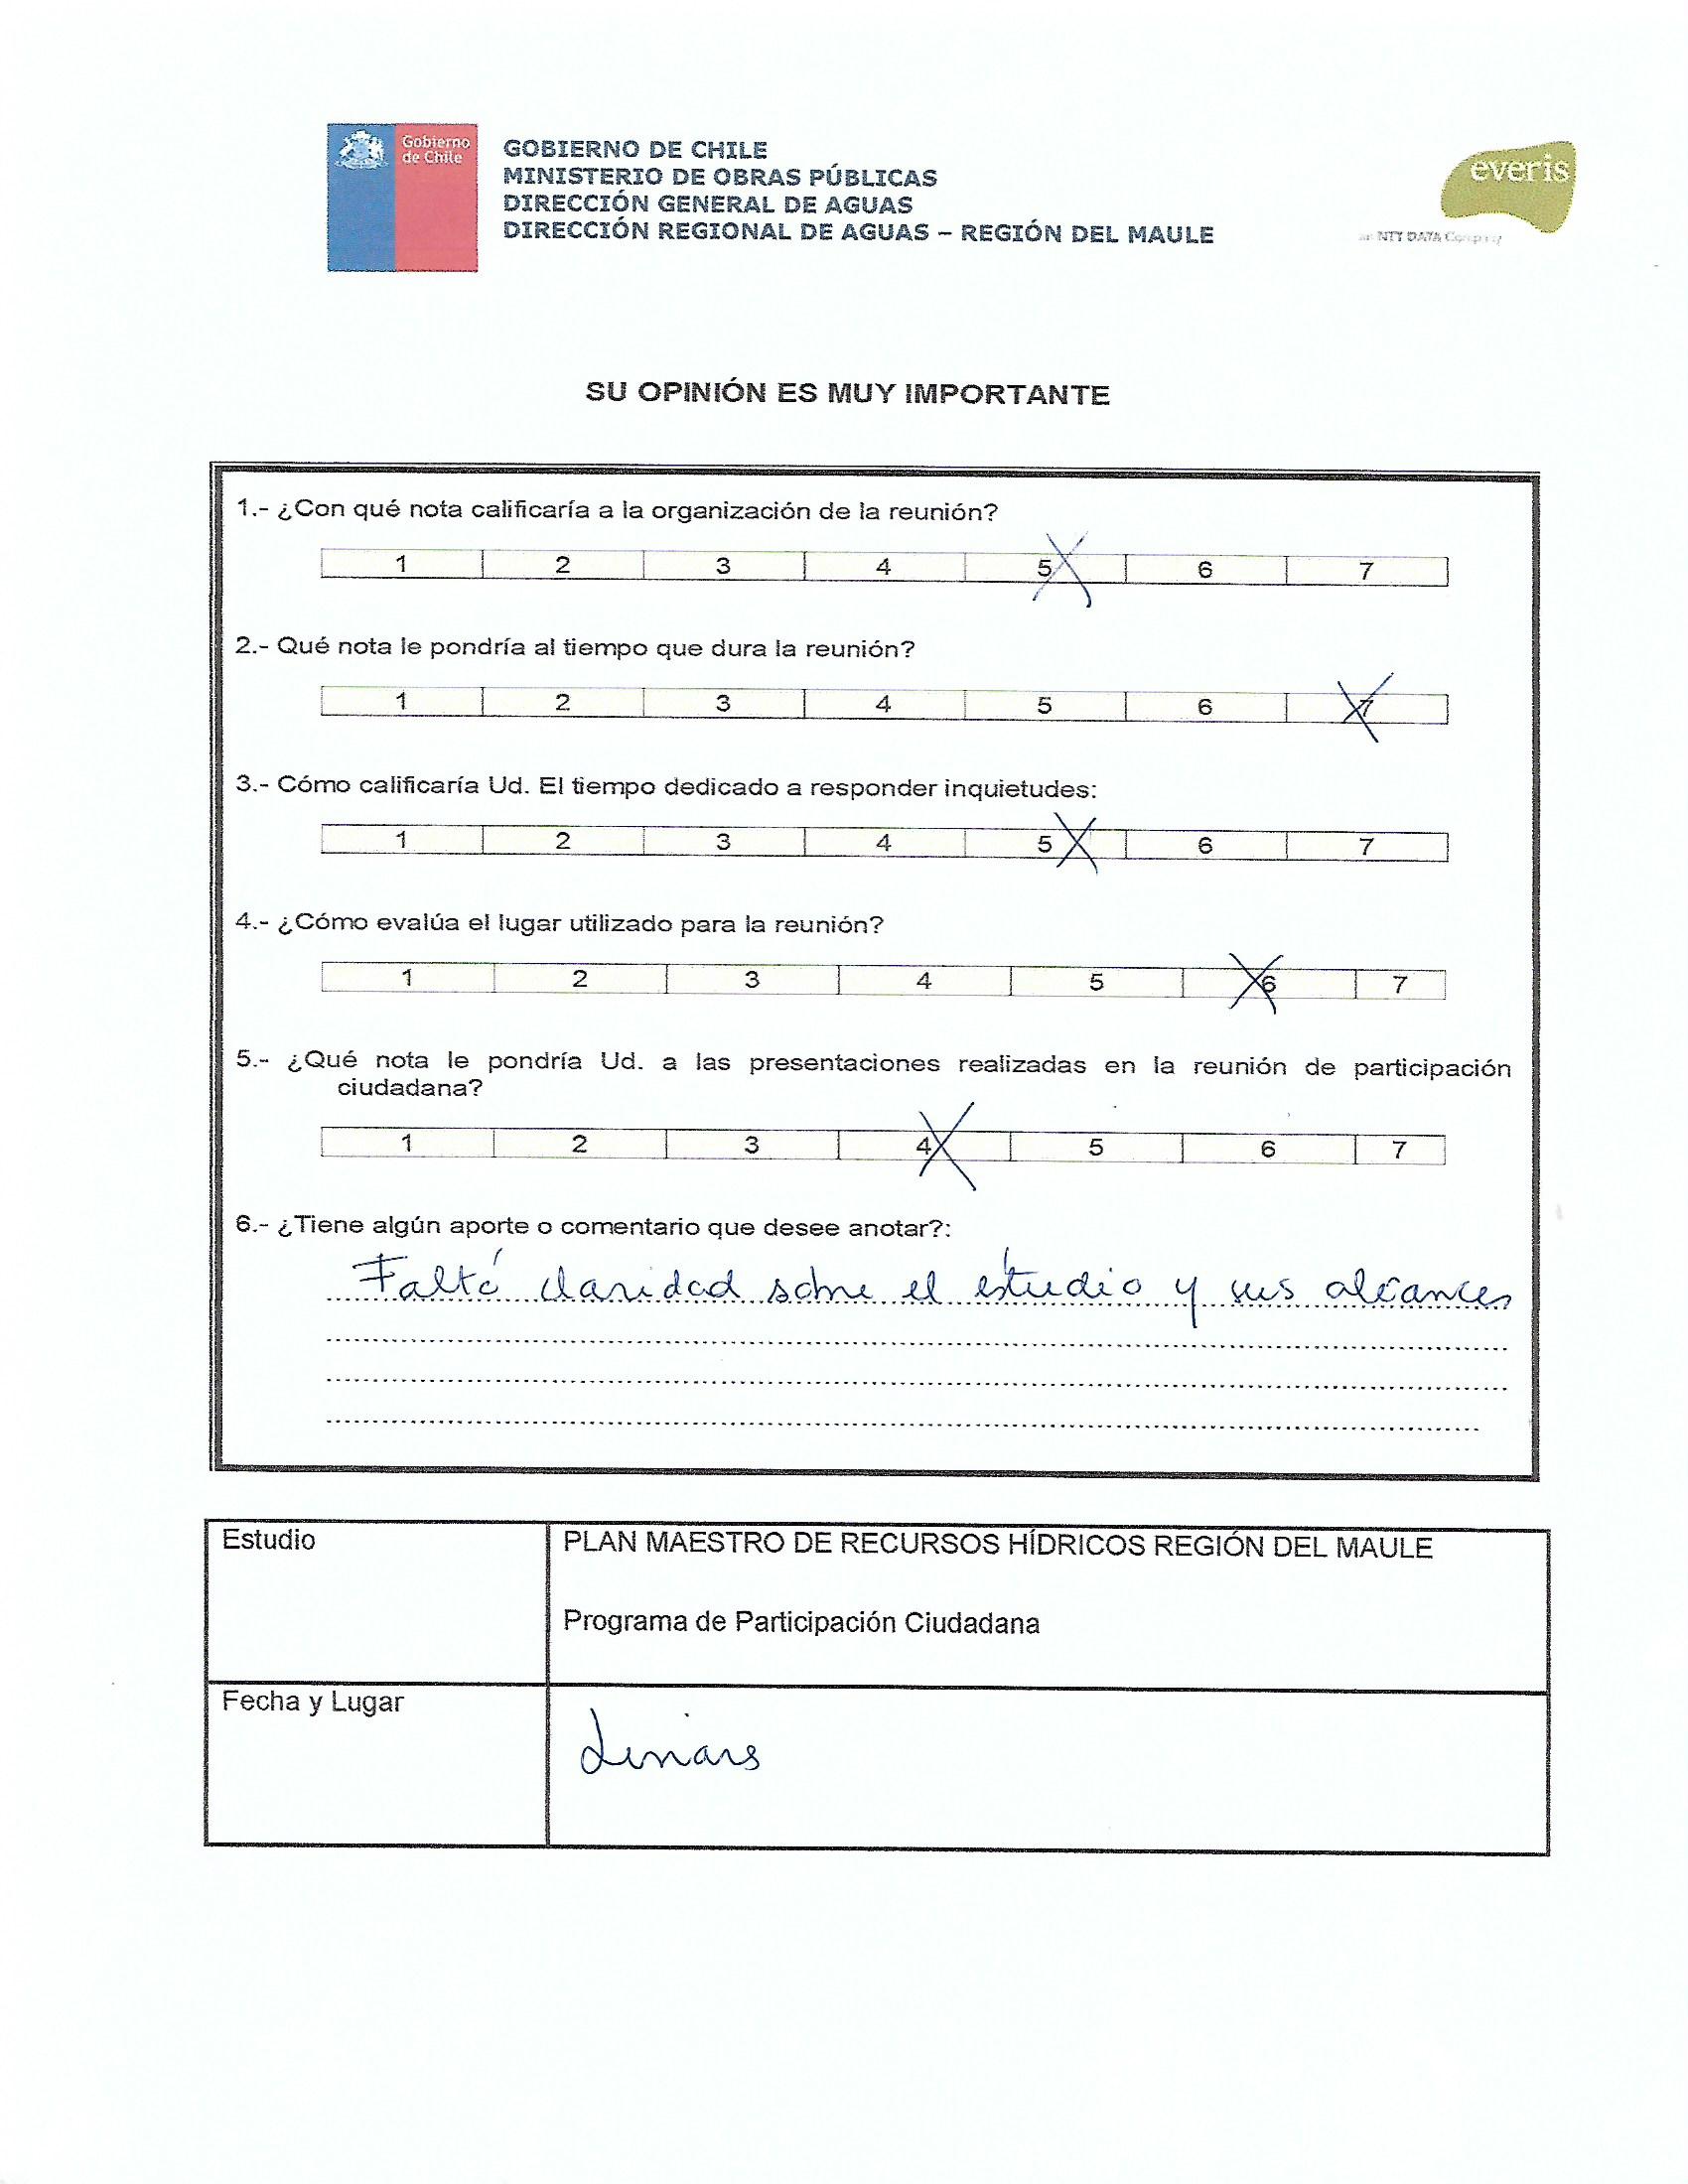 Gobierno
de Chile
GOBIERNO DE CHILE
MINISTERIO DE OBRAS PÚBLICAS
DIRECCIÓN GENERAL DE AGUAS
DIRECCIÓN REGIONAL DE AGUAS – REGIÓN DEL MAULE
everis
an NTT DATA Company
SU OPINIÓN ES MUY IMPORTANTE
1.- ¿Con qué nota calificaría a la organización de la reunión?
1 2 3 4 5 6 7
2.- Qué nota le pondría al tiempo que dura la reunión?
1 2 3 4 5 6 7
3.- Cómo calificaría Ud. El tiempo dedicado a responder inquietudes:
1 2 3 4 5 6 7
4.- ¿Cómo evalúa el lugar utilizado para la reunión?
1 2 3 4 5 6 7
5.- ¿Qué nota le pondría Ud. a las presentaciones realizadas en la reunión de participación
ciudadana?
1 2 3 4 5 6 7
6.- ¿Tiene algún aporte o comentario que desee anotar?:
Faltó claridad sobre el estudio y sus alcances
Estudio PLAN MAESTRO DE RECURSOS HÍDRICOS REGIÓN DEL MAULE
Programa de Participación Ciudadana
Fecha y Lugar
Linares